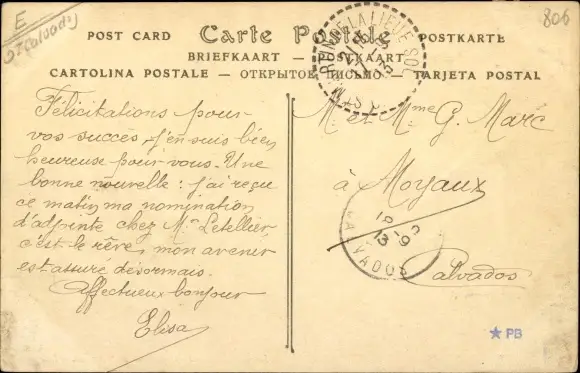 E
St (Calvados)
806
POST CARD Carte Postale POSTKARTE
BRIEFKAART — POSTKAART
CARTOLINA POSTALE — ОТКРЫТОЕ ПИСЬМО — TARJETA POSTAL
Félicitations pour
vos succès, j'en suis bien
heureuse pour vous. Une
bonne nouvelle : j'ai reçu
ce matin ma nomination
d'adjointe chez Me Letellier
c'est le rêve, mon avenir
est assuré désormais.
Affectueux bonjour
Elisa
M. et Mme G. Marc
à Moyaux
Calvados
DE LA LIEUE
13
CALVADOS
13
★ PB